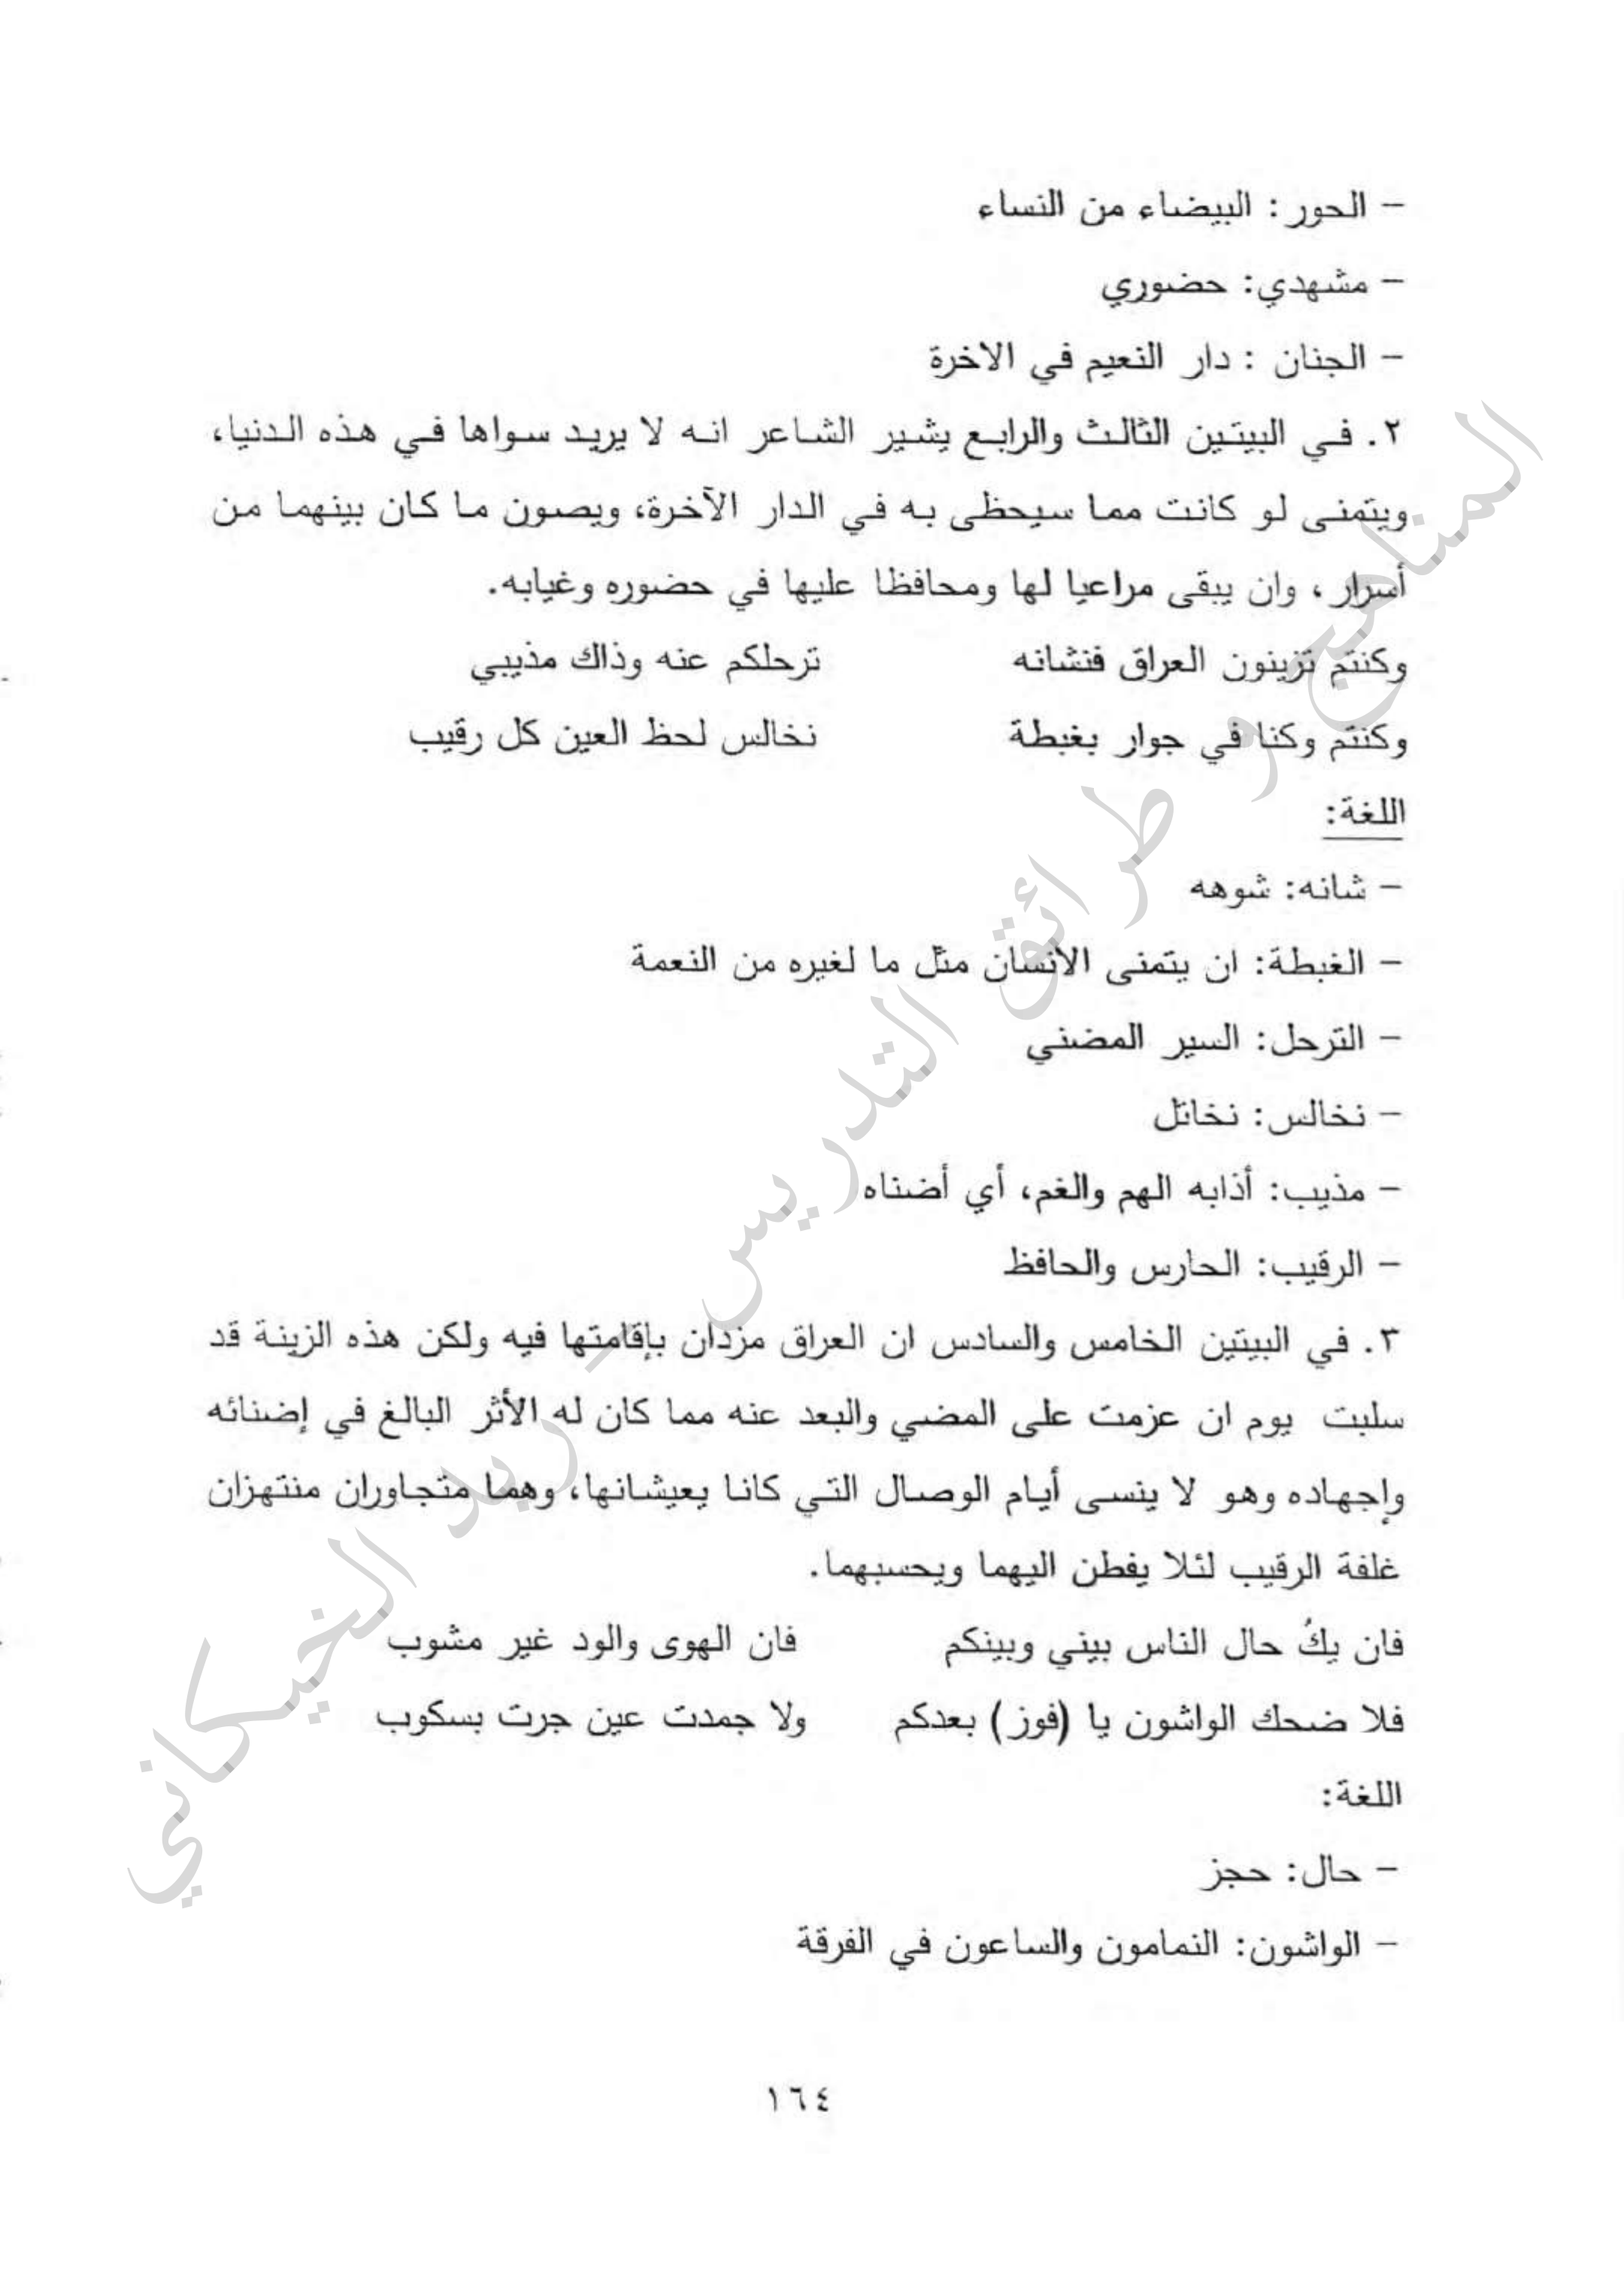 – الحور : البيضاء من النساء
– مشهدي: حضوري
– الجنان : دار النعيم في الاخرة
٢. في البيتين الثالث والرابع يشير الشاعر انه لا يريد سواها في هذه الدنيا،
ويتمنى لو كانت مما سيحظى به في الدار الآخرة، ويصون ما كان بينهما من
أسرار، وان يبقى مراعيا لها ومحافظا عليها في حضوره وغيابه.
وكنتم تزينون العراق فنشانه ترحلكم عنه وذاك مذيبي
وكنتم وكنا في جوار بغبطة نخالس لحظ العين كل رقيب
اللغة:
– شانه: شوهه
– الغبطة: ان يتمنى الانسان مثل ما لغيره من النعمة
– الترحل: السير المضني
– نخالس: نخاتل
– مذيب: أذابه الهم والغم، أي أضناه
– الرقيب: الحارس والحافظ
٣. في البيتين الخامس والسادس ان العراق مزدان بإقامتها فيه ولكن هذه الزينة قد
سلبت يوم ان عزمت على المضي والبعد عنه مما كان له الأثر البالغ في إضنائه
وإجهاده وهو لا ينسى أيام الوصال التي كانا يعيشانها، وهما متجاوران منتهزان
غلفة الرقيب لئلا يفطن اليهما ويحسبهما.
فان يكُ حال الناس بيني وبينكم فان الهوى والود غير مشوب
فلا ضحك الواشون يا (فوز) بعدكم ولا جمدت عين جرت بسكوب
اللغة:
– حال: حجز
– الواشون: النمامون والساعون في الفرقة
١٦٤
المناهج و طرائق التدريس – ريد الخيكاني